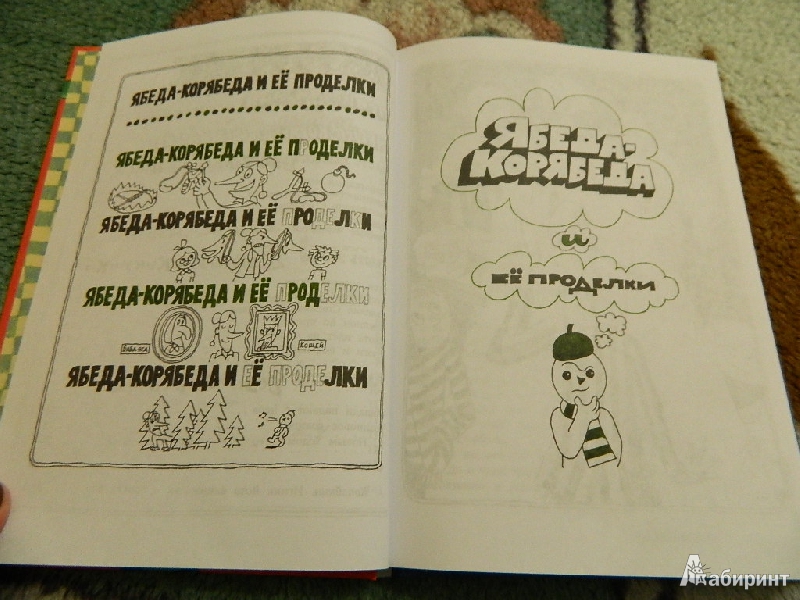 ЯБЕДА-КОРЯБЕДА И ЕЁ ПРОДЕЛКИ
ЯБЕДА-КОРЯБЕДА И ЕЁ ПРОДЕЛКИ
ЯБЕДА-КОРЯБЕДА И ЕЁ ПРОДЕЛКИ
ЯБЕДА-КОРЯБЕДА И ЕЁ ПРОДЕЛКИ
БАБА-ЯГА
КОЩЕЙ
ЯБЕДА-КОРЯБЕДА И ЕЁ ПРОДЕЛКИ
ЯБЕДА-
КОРЯБЕДА
и
ЕЁ ПРОДЕЛКИ
Лабиринт